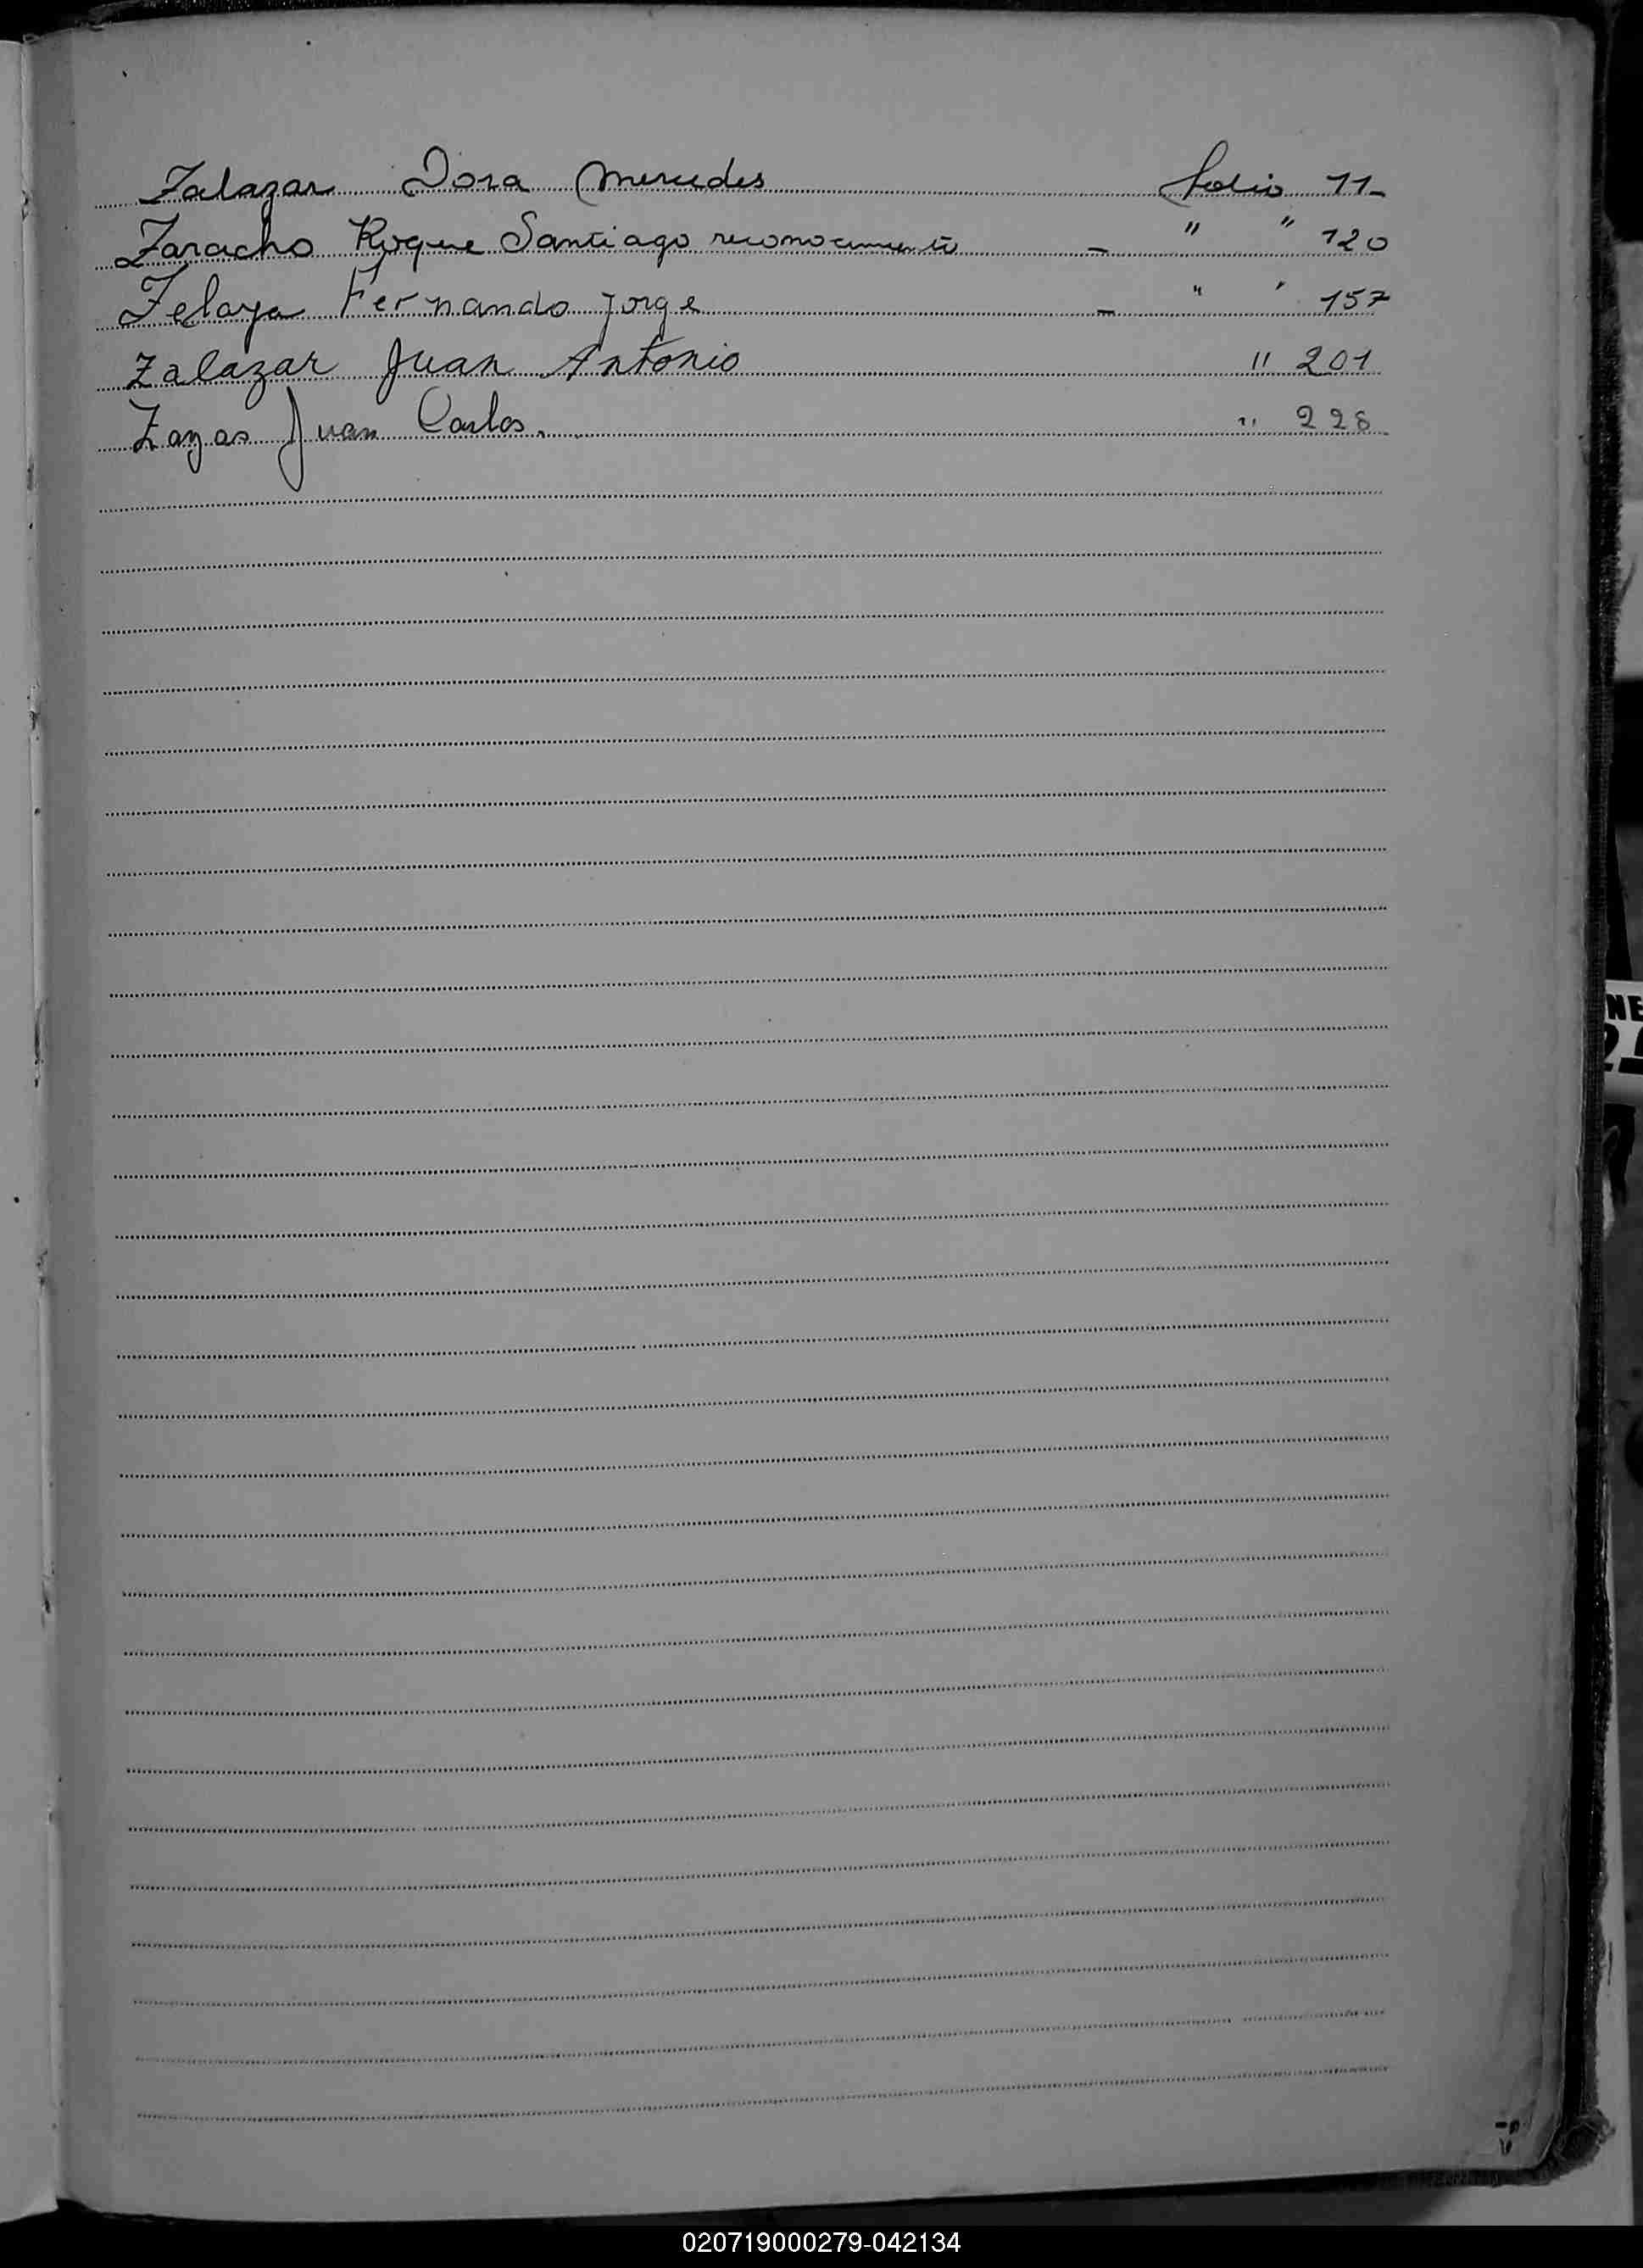 Zalazar Dora Mercedes folio 11-
Zaracho Roque Santiago reconocimiento - " " 120
Zelaya Fernando Jorge - " " 157
Zalazar Juan Antonio " 201
Zayas Juan Carlos. " 228
NE
020719000279-042134